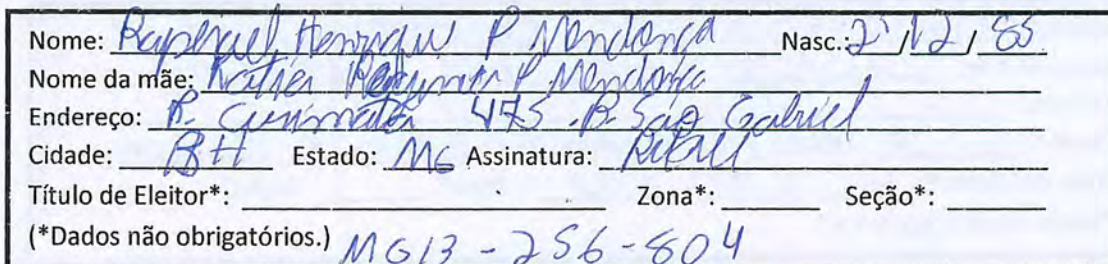 Nome: Raphael Henrique P Mendonça Nasc.: 2 /12/ 85
Nome da mãe: Katia P Mendonça
Endereço: R. 475 . B. São Gabriel
Cidade: BH Estado: MG Assinatura:
Título de Eleitor*: Zona*: Seção*:
(*Dados não obrigatórios.) MG13-256-804